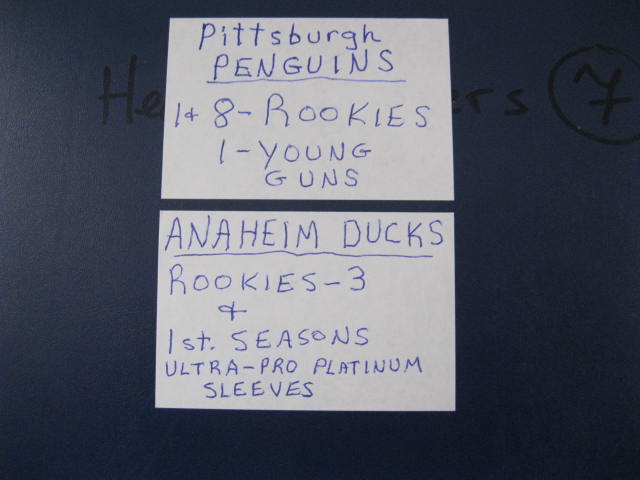 Pittsburgh
PENGUINS
1+ 8-ROOKIES
1-YOUNG
GUNS
He ers 7
ANAHEIM DUCKS
ROOKIES-3
+
1st. SEASONS
ULTRA-PRO PLATINUM
SLEEVES